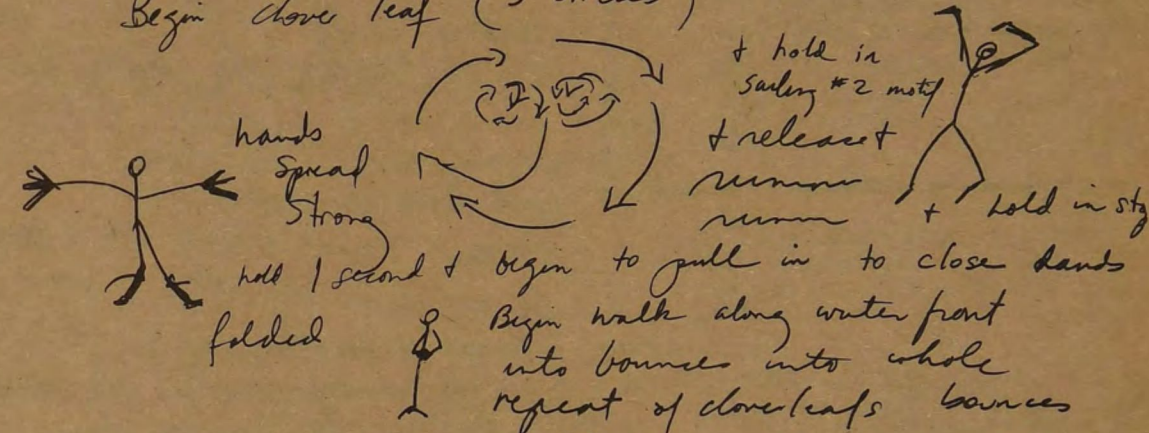 Begin clover leaf (3 circles)
+ hold in
sailing #2 motif
+ release +
hands
spread
strong
+ hold in
hold 1 second + begin to pull in to close hands
folded
Begin walk along water front
into bounces into whole
repeat of cloverleafs bounces